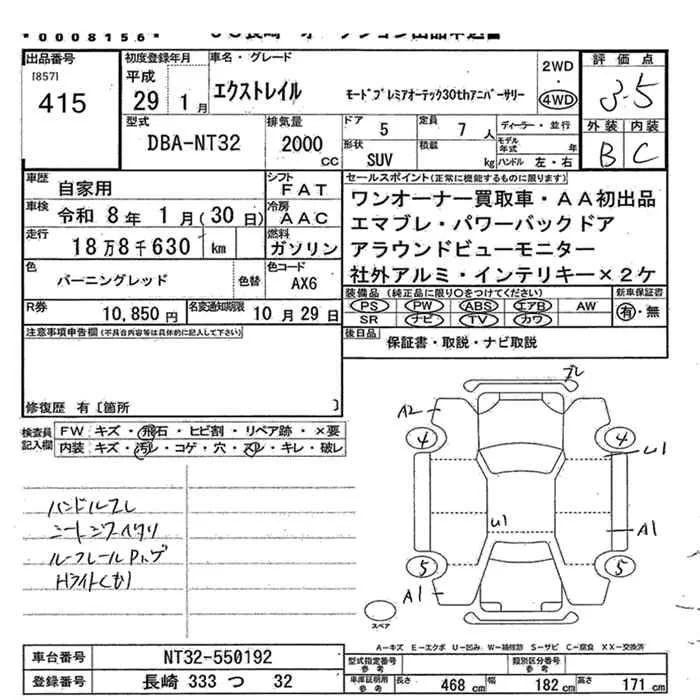 *0008156*
出品番号
[857]
415
初度登録年月
平成
29 1月
車名・グレード
エクストレイル
モードプレミアオーテック30thアニバーサリー
2WD
・
4WD
評価点
3.5
外装 内装
B C
型式
DBA-NT32
排気量
2000
CC
ドア
5
定員
7 人
ディーラー・並行
形状
SUV
積載
kg
モデル年式 年
ハンドル 左・右
車歴
自家用
シフト
FAT
車検
令和 8年 1月(30日)
冷房
AAC
走行
18万8千630 km
燃料
ガソリン
色
バーニングレッド
色替
色コード
AX6
R券
10,850円
名変通知期限
10月29日
セールスポイント(正常に機能するものに限ります)
ワンオーナー買取車・AA初出品
エマブレ・パワーバックドア
アラウンドビューモニター
社外アルミ・インテリキー×2ケ
装備品 (純正品に限り○をつけてください)
新車保証書
PS PW ABS エアB AW
SR ナビ TV カワ
有・無
後日品
保証書・取説・ナビ取説
注意事項申告欄(不具合内容等は具体的に記入して下さい)
修復歴 有〔箇所 〕
検査員
記入欄
FW キズ・飛石・ヒビ割・リペア跡・×要
内装 キズ・汚レ・コゲ・穴・スレ・キレ・破レ
ハンドルスレ
ルーフレール
Hライトくもり
A2
4
4
U1
U1
A1
5
5
A1
スペア
A-キズ E-エクボ U-凹み W-補修跡 S-サビ C-腐食 XX-交換済
車台番号
NT32-550192
登録番号
長崎 333 つ 32
型式指定番号
参考
類別区分番号
参考
車庫証明用
参考
長さ
468 cm
幅
182 cm
高さ
171 cm